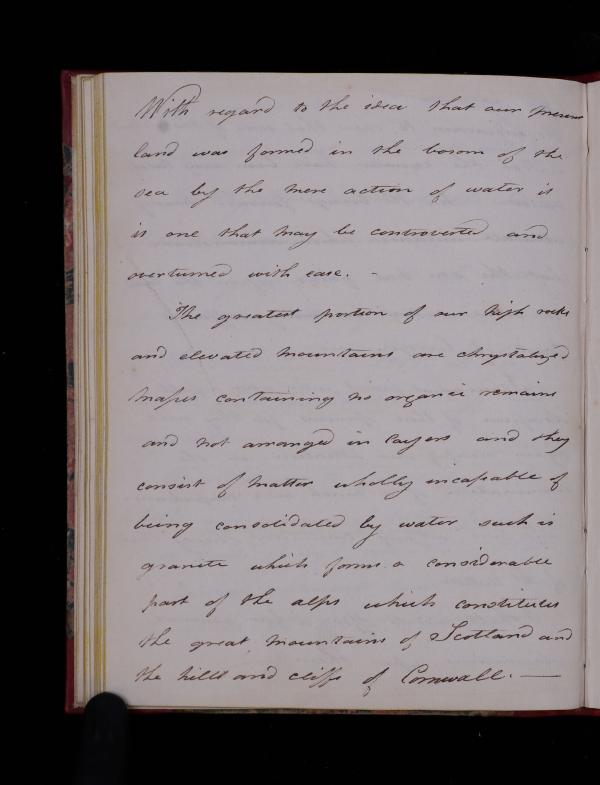 With regard to the idea that our present
land was formed in the bosom of the
sea by the mere action of water it
is one that may be controverted and
overturned with ease. -
The greatest portion of our high rocks
and elevated mountains are chrystalized
masses containing no organic remains
and not arranged in layers and they
consist of matter wholly incapable of
being consolidated by water such is
granite which forms a considerable
part of the alps which constitutes
the great mountains of Scotland and
the hills and cliffs of Cornwall. —